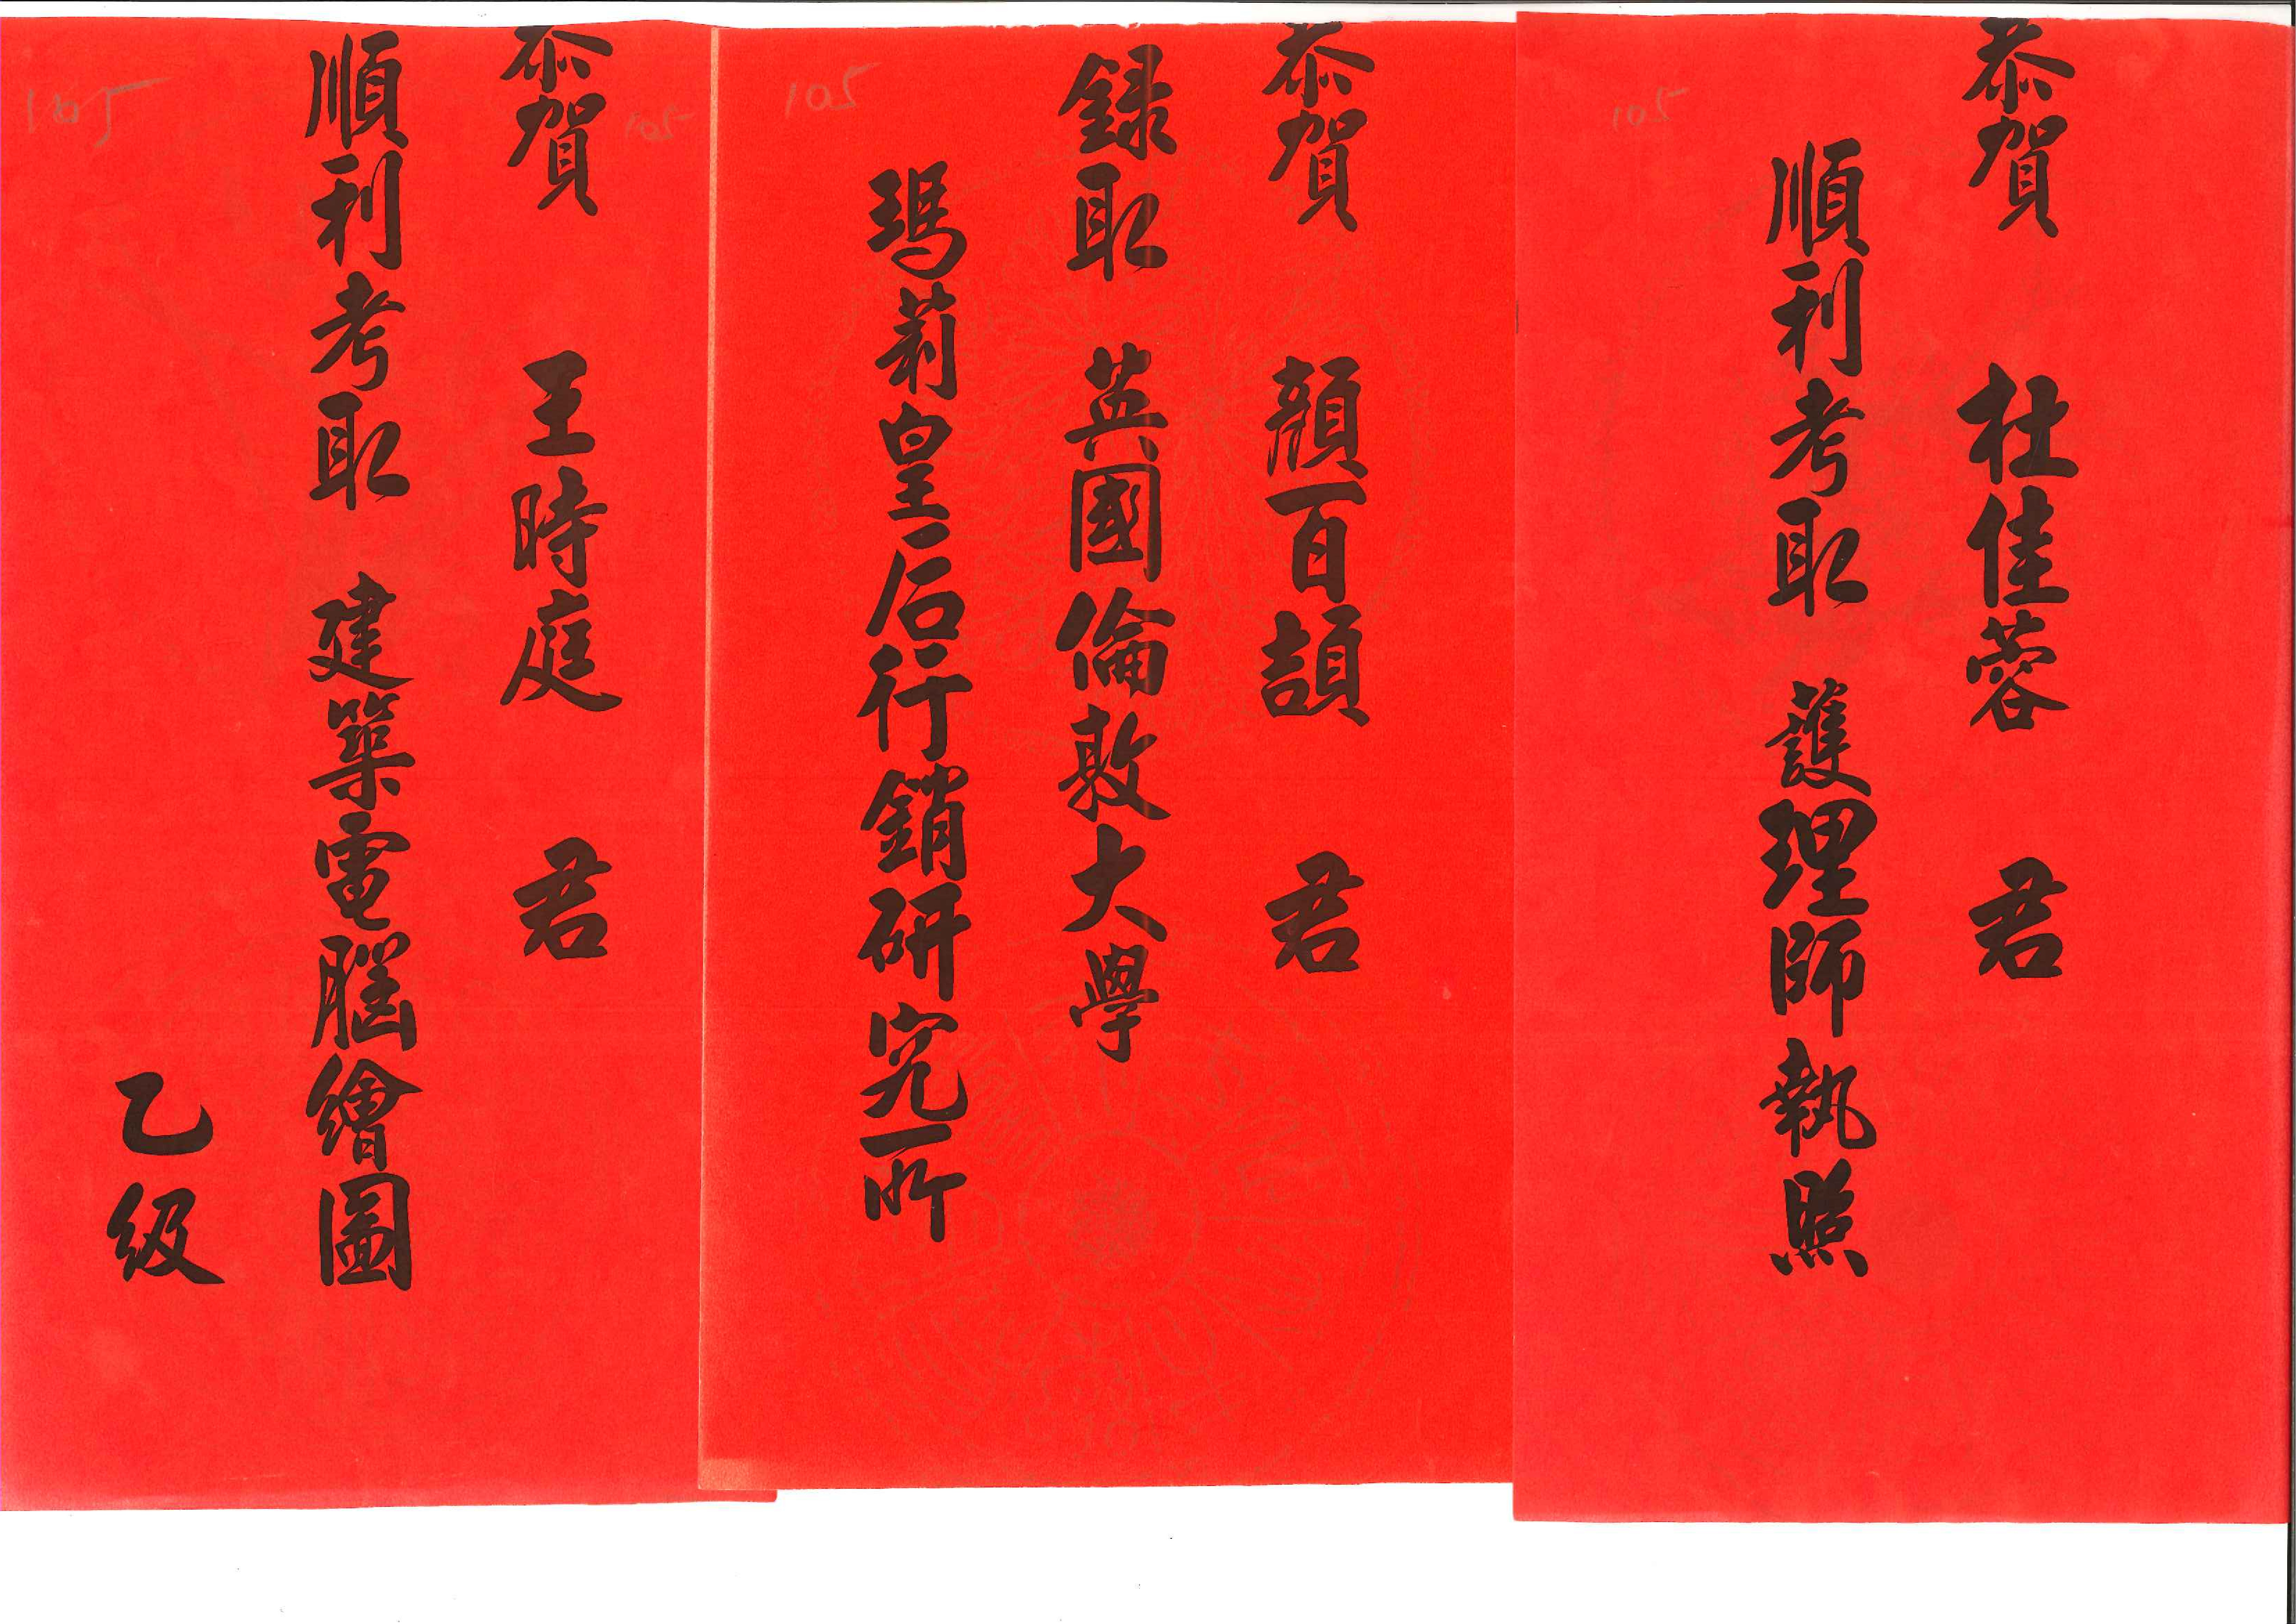 恭賀 杜佳蓉 君
順利考取 護理師執照
105
恭賀 顏百頡 君
錄取 英國倫敦大學
瑪莉皇后行銷研究所
105
恭賀 王時庭 君
順利考取 建築電腦繪圖
乙級
105
105